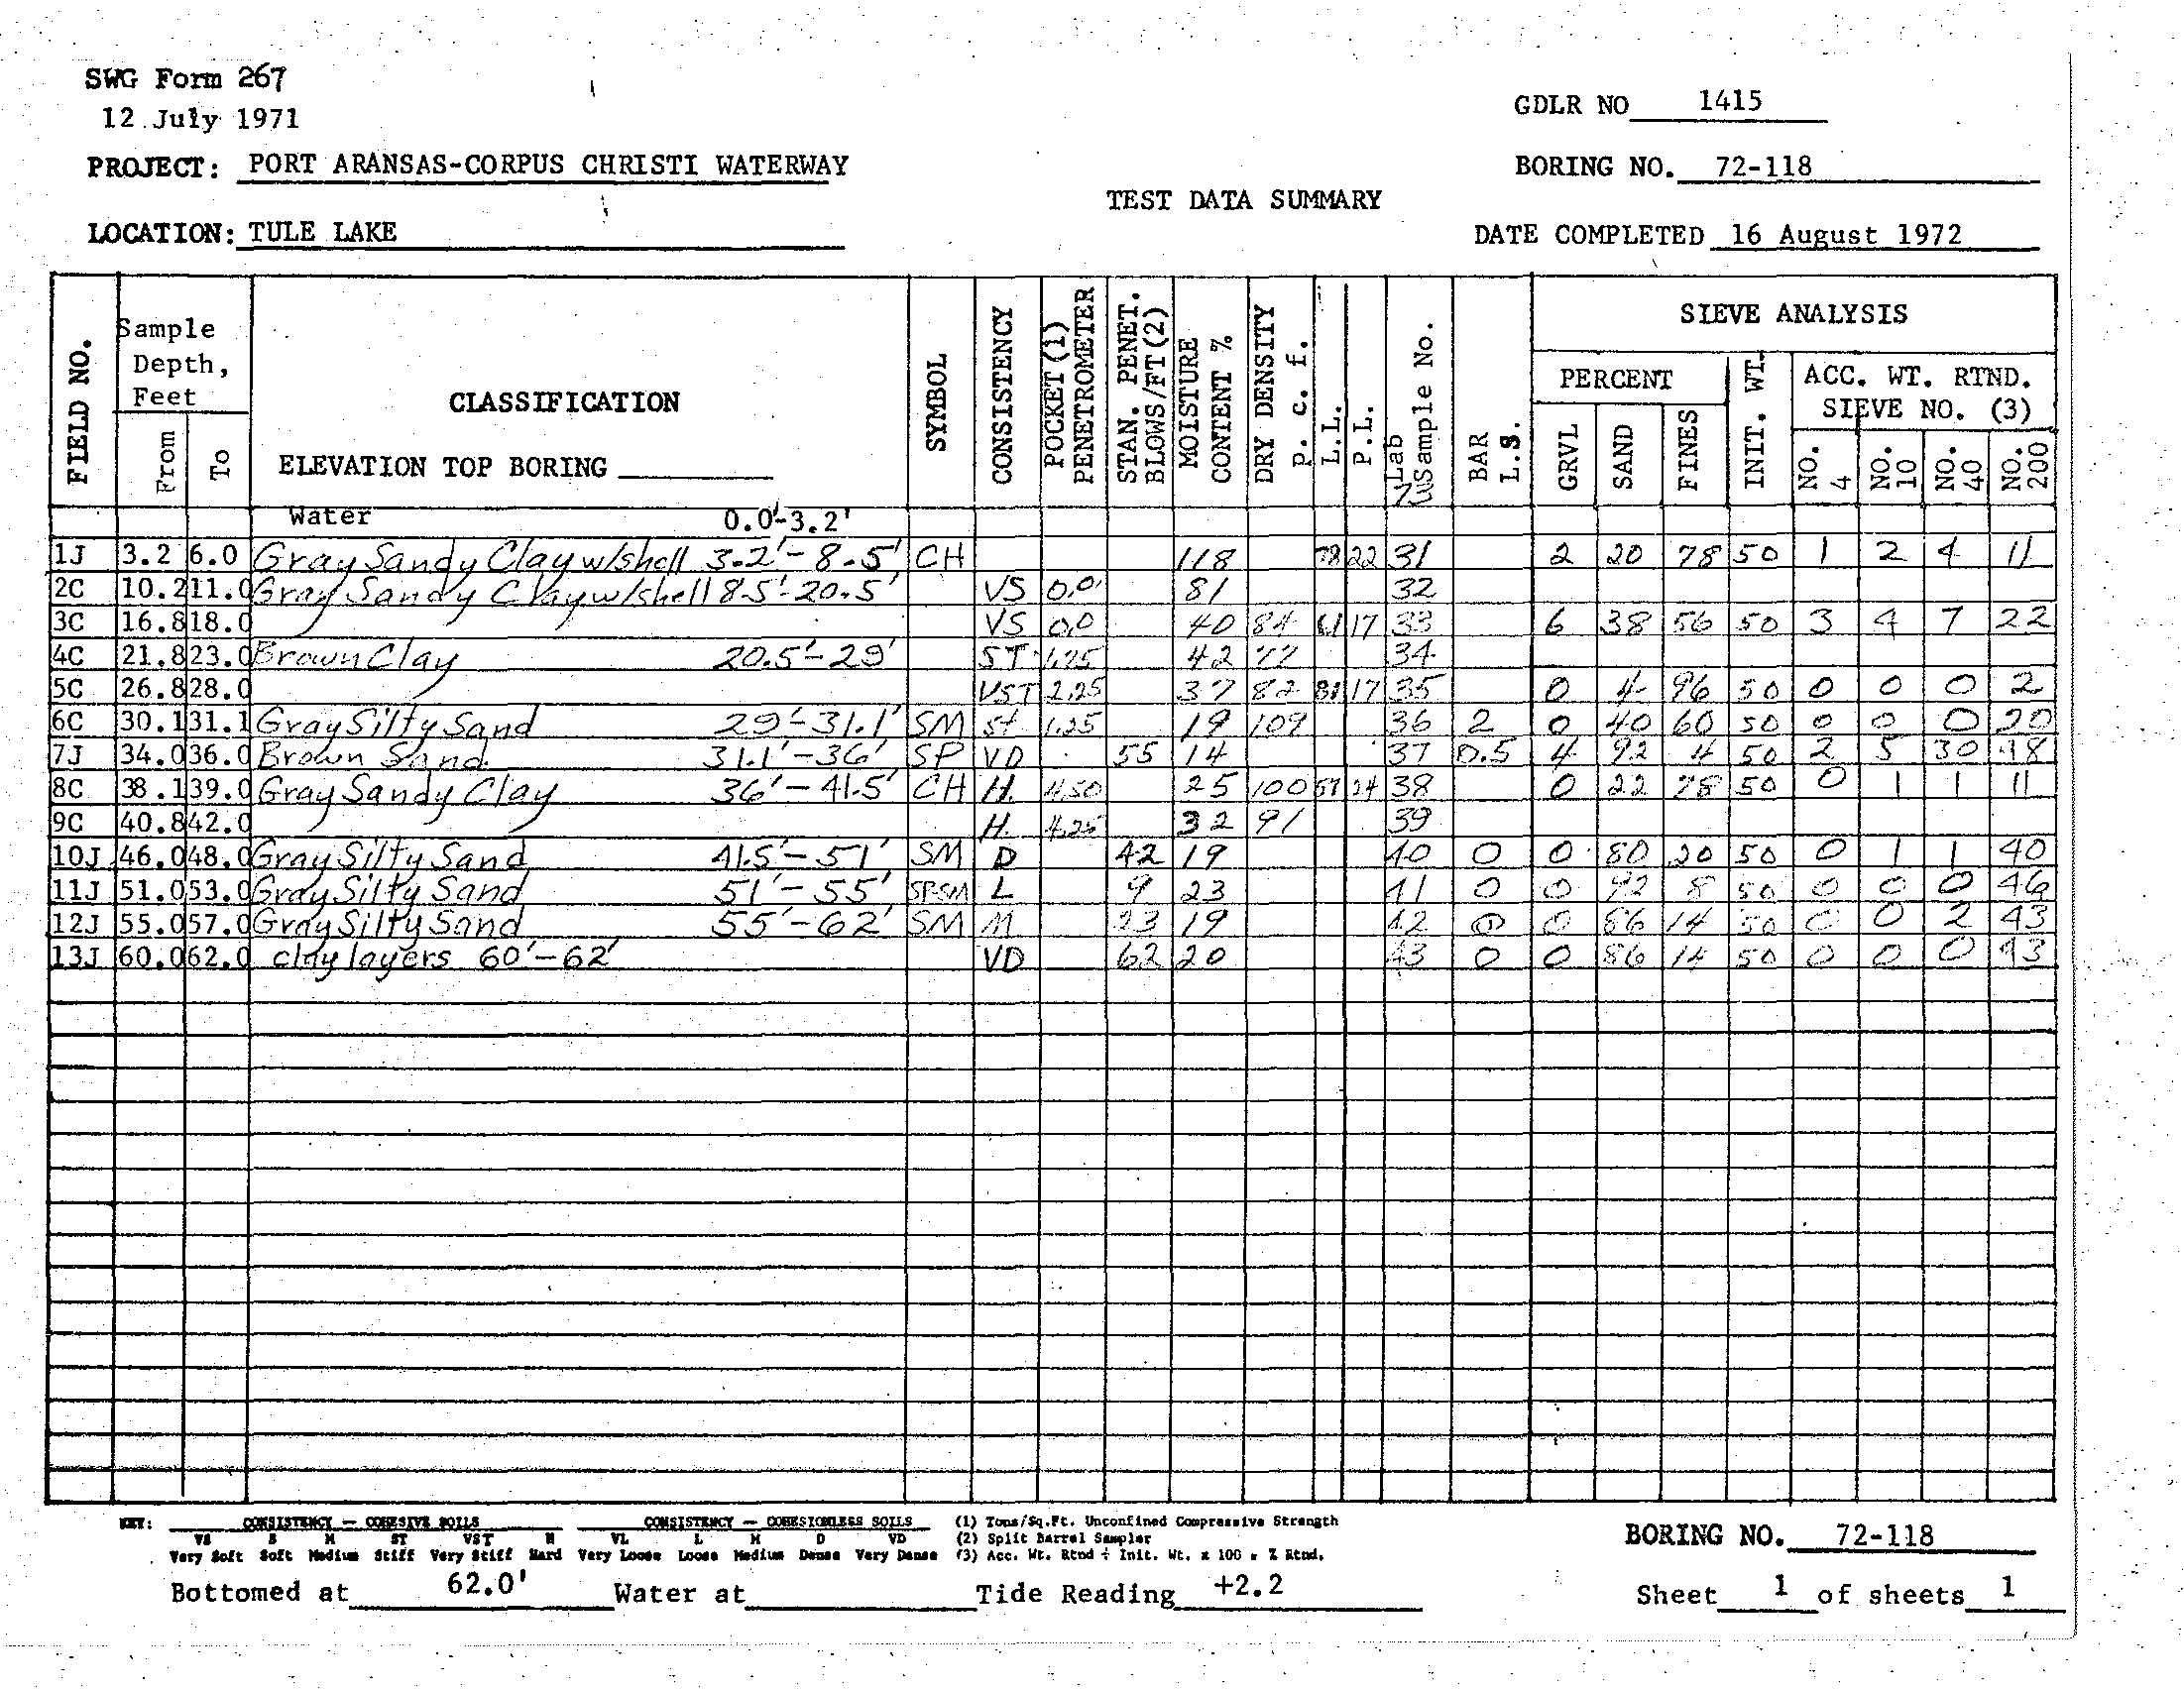 SWG Form 267
12 July 1971
GDLR NO 1415
PROJECT: PORT ARANSAS-CORPUS CHRISTI WATERWAY
BORING NO. 72-118
TEST DATA SUMMARY
LOCATION: TULE LAKE
DATE COMPLETED 16 August 1972
FIELD NO. Sample Depth, Feet From To CLASSIFICATION ELEVATION TOP BORING SYMBOL CONSISTENCY POCKET (1) PENETROMETER STAN. PENET. BLOWS/FT (2) MOISTURE CONTENT % DRY DENSITY p. c. f. L.L. P.L. Lab Sample No. BAR L.S. SIEVE ANALYSIS PERCENT GRVL SAND FINES INIT. WT. ACC. WT. RTND. SIEVE NO. (3) NO. 4 NO. 10 NO. 40 NO. 200
Water 0.0'-3.2'
1J 3.2 6.0 Gray Sandy Clay w/shell 3.2'-8.5' CH 118 78 22 31 2 20 78 50 1 2 4 11
2C 10.2 11.0 Gray Sandy Clay w/shell 8.5'-20.5' VS 0.0 81 32
3C 16.8 18.0 VS 0.0 40 84 61 17 33 6 38 56 50 3 4 7 22
4C 21.8 23.0 Brown Clay 20.5'-29' ST 1.75 42 77 34
5C 26.8 28.0 VST 2.25 37 82 81 17 35 0 4 96 50 0 0 0 2
6C 30.1 31.1 Gray Silty Sand 29'-31.1' SM St 1.25 19 109 36 2 0 40 60 50 0 0 0 20
7J 34.0 36.0 Brown Sand 31.1'-36' SP VD 55 14 37 0.5 4 92 4 50 2 5 30 48
8C 38.1 39.0 Gray Sandy Clay 36'-41.5' CH H. 4.50 25 100 57 24 38 0 22 78 50 0 1 1 11
9C 40.8 42.0 H. 4.25 32 91 39
10J 46.0 48.0 Gray Silty Sand 41.5'-51' SM D 42 19 40 0 0 80 20 50 0 1 1 40
11J 51.0 53.0 Gray Silty Sand 51'-55' SP-SM L 9 23 41 0 0 92 8 50 0 0 0 46
12J 55.0 57.0 Gray Silty Sand 55'-62' SM M 23 19 42 0 0 86 14 50 0 0 2 43
13J 60.0 62.0 clay layers 60'-62' VD 62 20 43 0 0 86 14 50 0 0 0 43
KEY: CONSISTENCY - COHESIVE SOILS CONSISTENCY - COHESIONLESS SOILS (1) Tons/Sq.Ft. Unconfined Compressive Strength
VS S M ST VST H VL L M D VD (2) Split Barrel Sampler
Very Soft Soft Medium Stiff Very Stiff Hard Very Loose Loose Medium Dense Very Dense (3) Acc. Wt. Rtnd ÷ Init. Wt. x 100 = % Rtnd.
BORING NO. 72-118
Bottomed at 62.0' Water at Tide Reading +2.2
Sheet 1 of sheets 1